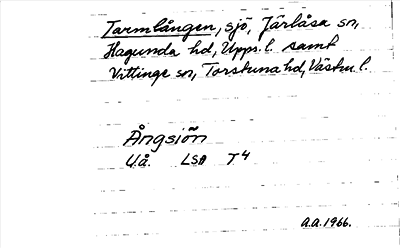 Tarmlången, sjö, Järlåsa sn,
Hagunda hd, Upps. l. samt
Vittinge sn, Torstuna hd, Västm l.
Ångsiön
U.å. LSA T4
A.A. 1966.